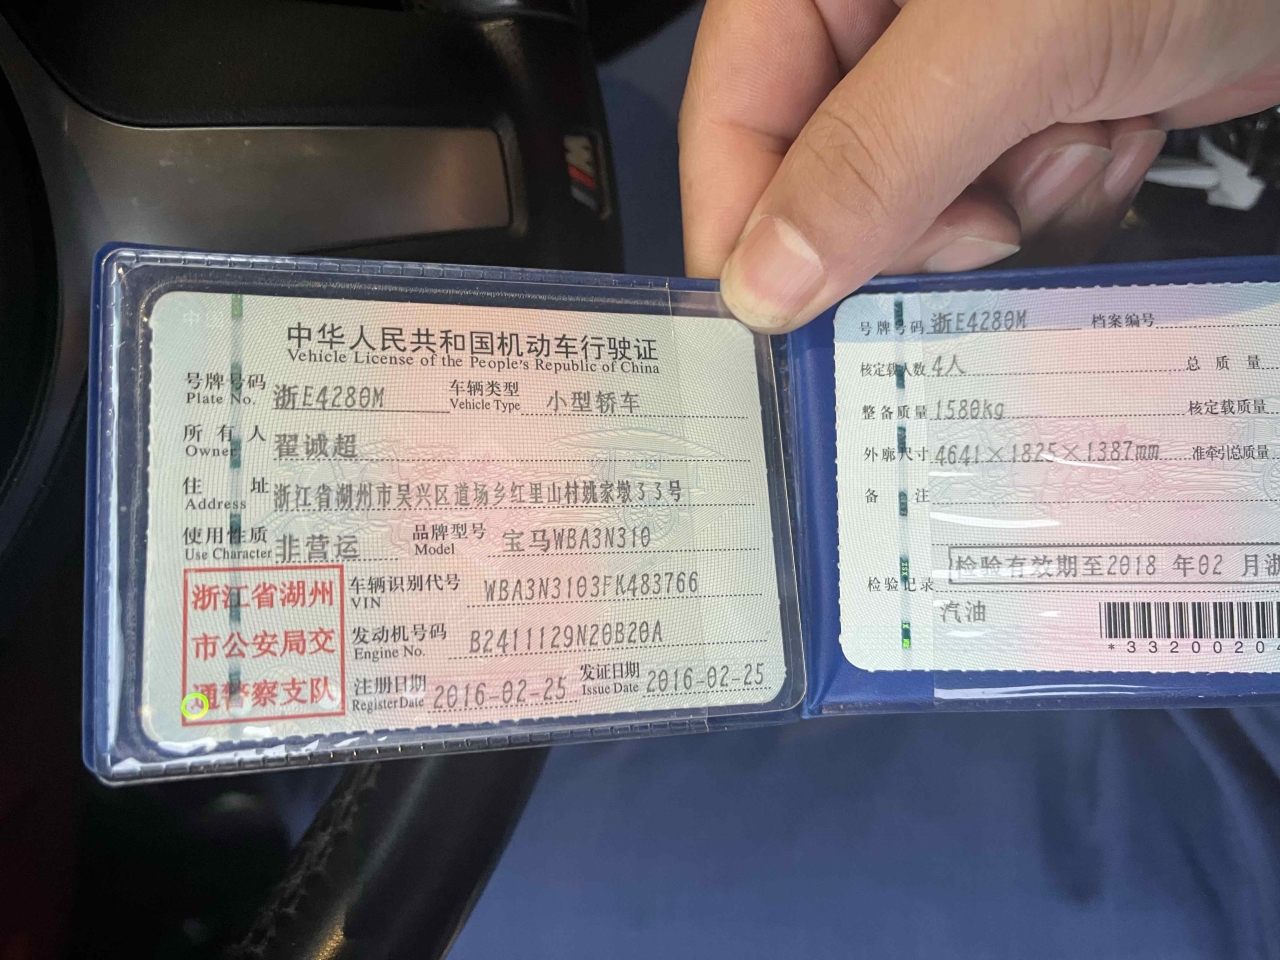 中华人民共和国机动车行驶证
Vehicle License of the People's Republic of China
号牌号码 浙E4280M 车辆类型 小型轿车
Plate No. Vehicle Type
所有人 翟诚超
Owner
住址 浙江省湖州市吴兴区道场乡红里山村姚家墩33号
Address
使用性质 非营运 品牌型号 宝马WBA3N310
Use Character Model
浙江省湖州
市公安局交
通警察支队
车辆识别代号 WBA3N3103FK483766
VIN
发动机号码 B2411129N20B20A
Engine No.
注册日期 2016-02-25 发证日期 2016-02-25
Register Date Issue Date
号牌号码 浙E4280M 档案编号
核定载人数 4人 总质量
整备质量 1580kg 核定载质量
外廓尺寸 4641×1825×1387mm 准牵引总质量
备注
检验有效期至2018 年02 月浙
检验记录
汽油
*3320020